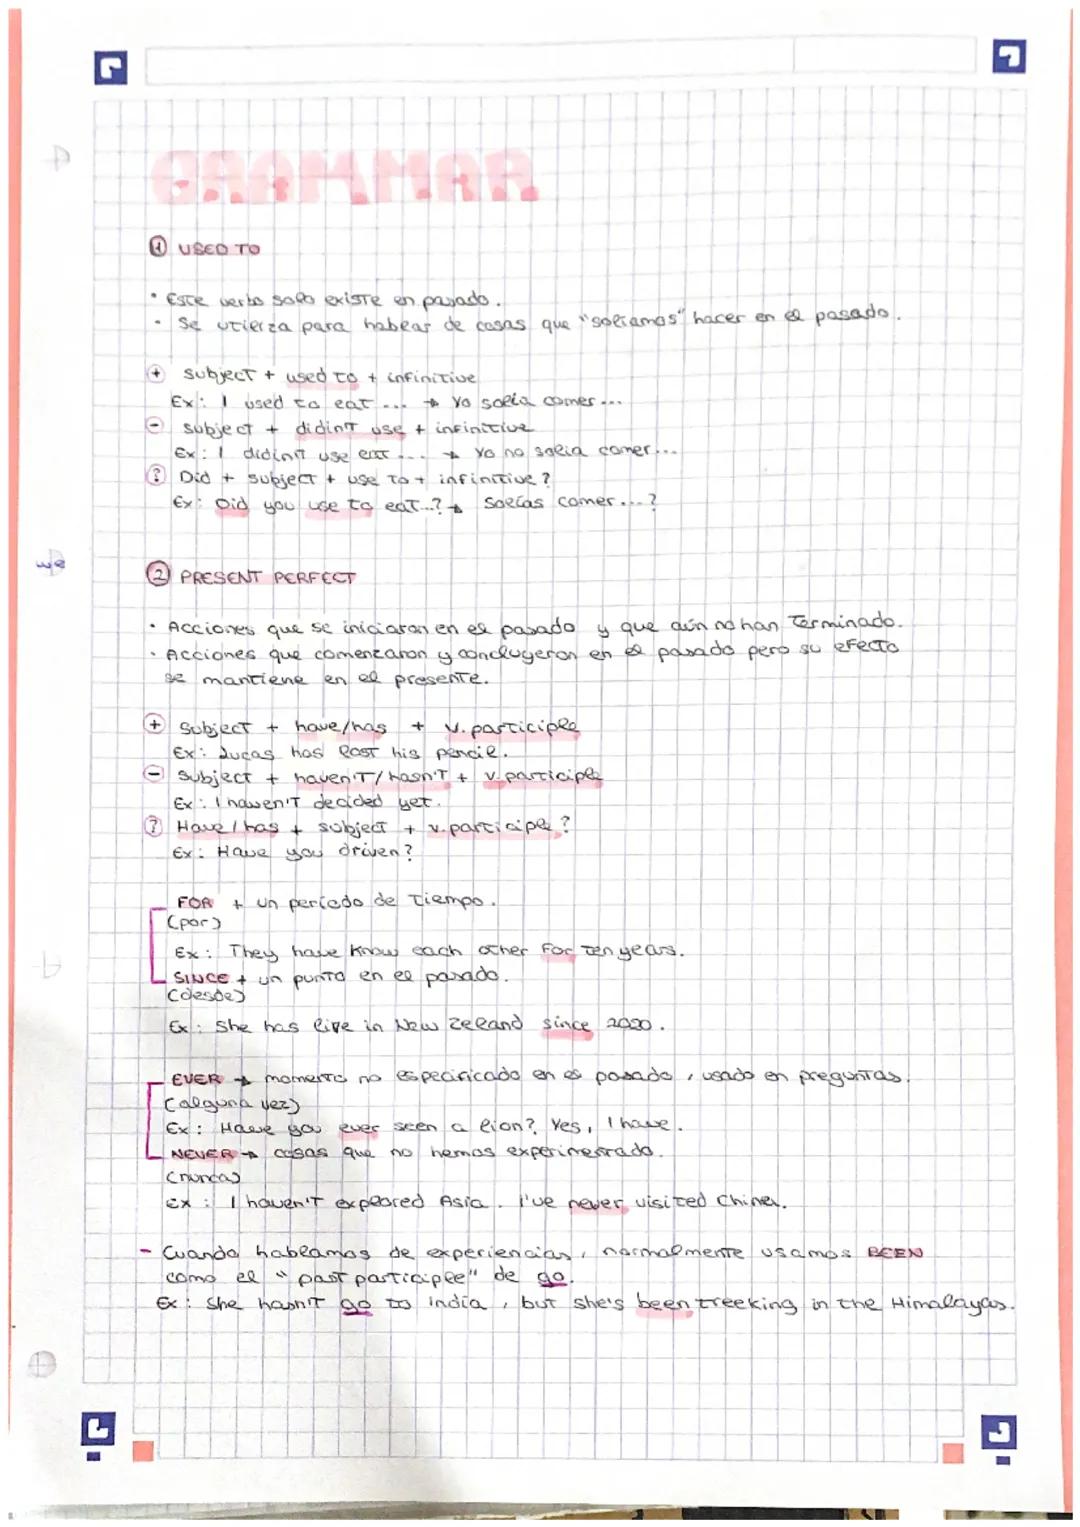 GRAMMAR
① USED TO
• Este verbo solo existe en pasado.
• Se utiliza para hablar de cosas que "solíamos" hacer en el pasado.
+ subject + used to + infinitive
Ex: I used to eat ... → Yo solía comer ...
- subject + didin't use + infinitive
Ex: I didin't use eat ... → Yo no solía comer ...
? Did + subject + use to + infinitive?
Ex: Did you use to eat ..? → Solías comer ...?
② PRESENT PERFECT
• Acciones que se iniciaron en el pasado y que aún no han terminado.
• Acciones que comenzaron y concluyeron en el pasado pero su efecto
se mantiene en el presente.
+ Subject + have/has + v. participle
Ex: Lucas has lost his pencil.
- subject + haven't/hasn't + v. participle
Ex: I haven't decided yet.
? Have/has + subject + v. participle?
Ex: Have you driven?
FOR + un período de tiempo.
(por)
Ex: They have know each other for ten years.
SINCE + un punto en el pasado.
(desde)
Ex: She has live in New Zeland since 2020.
EVER → momento no especificado en el pasado, usado en preguntas.
(alguna vez)
Ex: Have you ever seen a lion? Yes, I have.
NEVER → cosas que no hemos experimentado.
(nunca)
Ex: I haven't explored Asia. I've never visited China.
- Cuando hablamos de experiencias, normalmente usamos BEEN
como el "past participle" de go.
Ex: She hasn't go to India, but she's been treeking in the Himalayas.